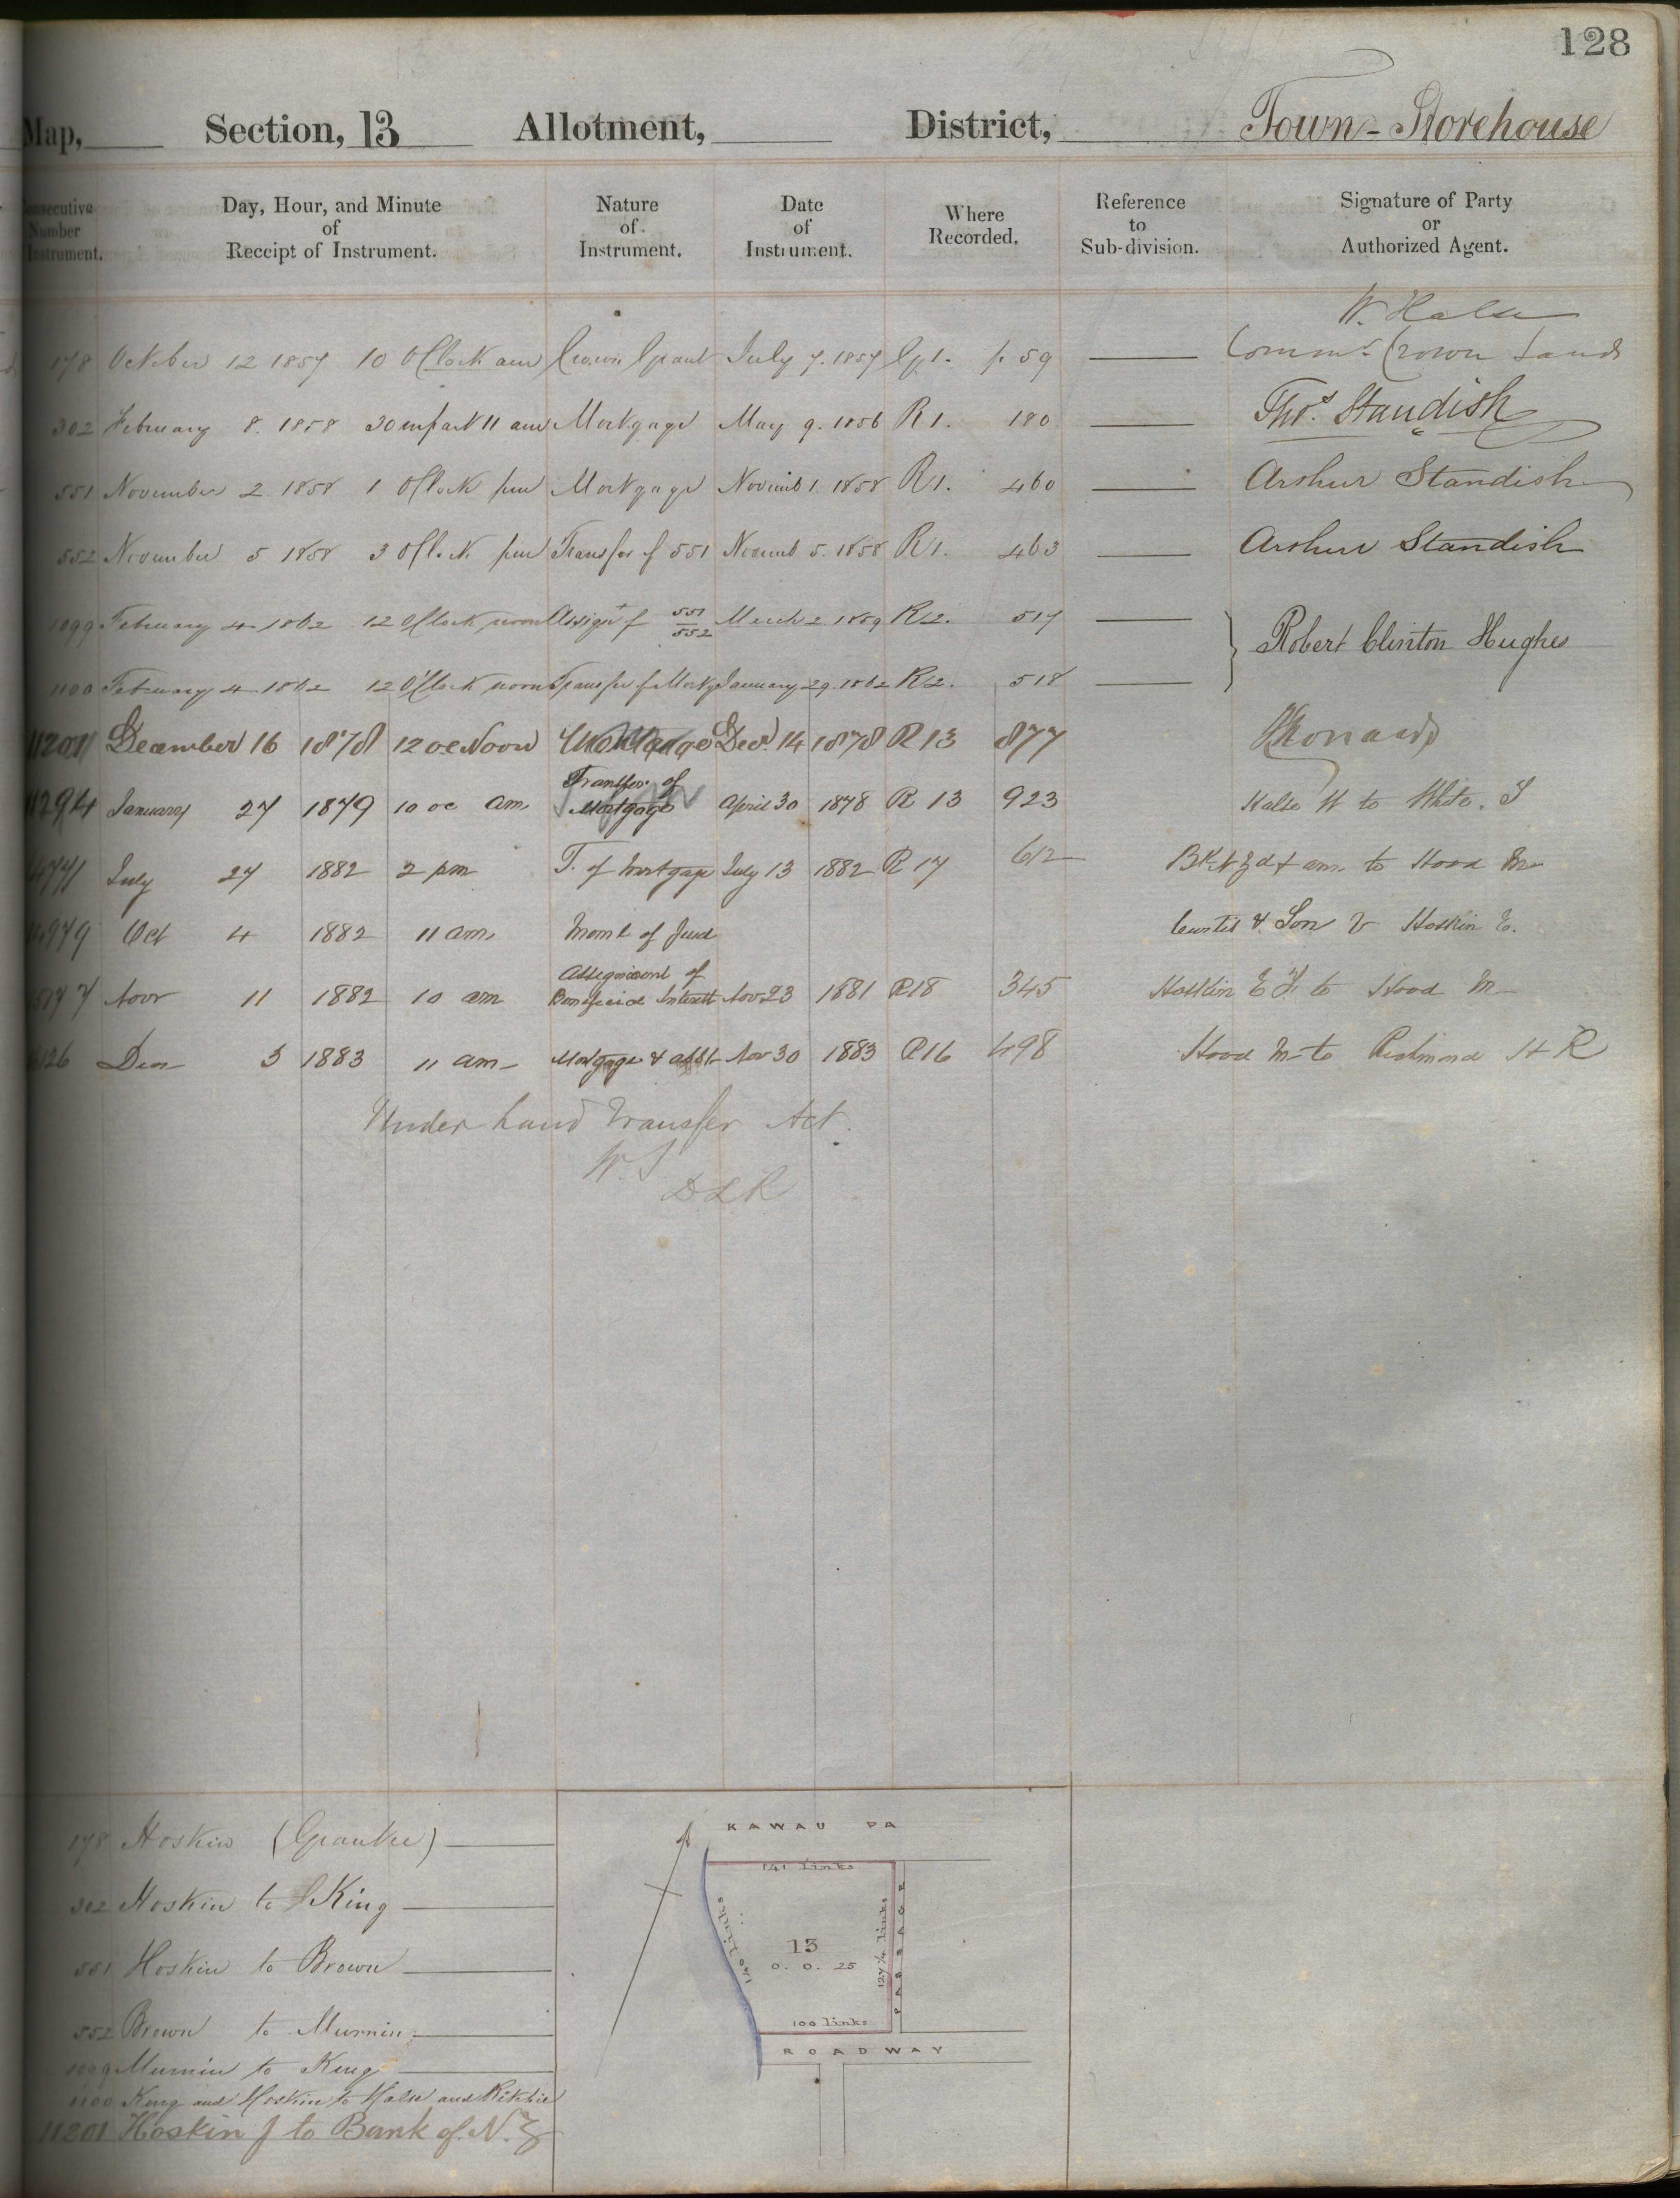 128
Map, Section, 13 Allotment, District, Town - Storehouse
Consecutive Number Instrument.
Day, Hour, and Minute of Receipt of Instrument.
Nature of Instrument.
Date of Instrument.
Where Recorded.
Reference to Sub-division.
Signature of Party or Authorized Agent.
W. Halse
178 October 12 1857 10 O'Clock am Crown Grant July 7. 1857 G 1. p 59 Commr. Crown Lands
302 February 8. 1858 30 m past 11 am Mortgage May 9. 1856 R 1. 180 Thos. Standish
551 November 2 1858 1 O'Clock pm Mortgage Novemb 1. 1858 R 1. 460 Arthur Standish
552 November 5 1858 3 O'Clock pm Transfer of 551 Novemb 5. 1858 R 1. 463 Arthur Standish
1099 February 4 1862 12 O'Clock noon Assigt of 551 552 March 2 1859 R 2. 517 Robert Clinton Hughes
1100 February 4 1862 12 O'Clock noon Transfer of Mortge January 29 1862 R 2. 518
11201 December 16 1878 12 oc Noon Mortgage Decr. 14 1878 R 13 877
11294 January 27 1879 10 oc am Transfer of Mortgage April 30 1878 R 13 923 Halse W to White. J
July 27 1882 2 pm T. of Mortgage July 13 1882 R 17 612 to Hood M
Oct 4 1882 11 am Meml of Jud Curtis & Son v Hoskin E.
Novr 11 1882 10 am Assignment of Beneficial Interest Nov 23 1881 R 18 345 Hoskin E to Hood M
Dec 3 1883 11 am Mortgage & Nov 30 1883 R 16 498 Hood M to Richmond H R
Under Land Transfer Act.
W. S
D L R
178 Hoskin (Grantee)
302 Hoskin to King
551 Hoskin to Brown
552 Brown to Murnin
1099 Murnin to King
1100 King and Hoskin to Halse and Ritchie
11201 Hoskin J to Bank of N. Z
KAWAU PA
141 links
140 links
13
0. 0. 25
127 1/4 links
PASSAGE
100 links
ROADWAY